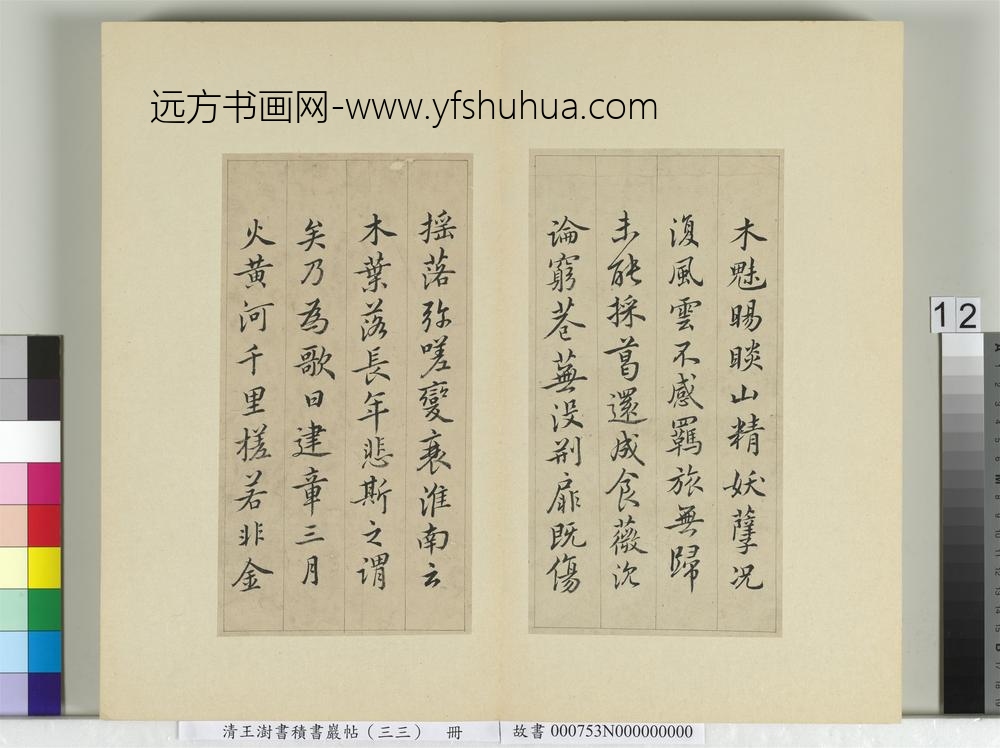 远方书画网-www.yfshuhua.com
木魅賜睒山精妖孽况
復風雲不感羈旅無歸
未能採葛還成食薇沉
論窮巷蕪没荆扉既傷
揺落弥嗟變衰淮南云
木葉落長年悲斯之謂
矣乃為歌曰建章三月
火黄河千里槎若非金
12
清王澍書積書巖帖（三三） 冊
故書 000753N000000000